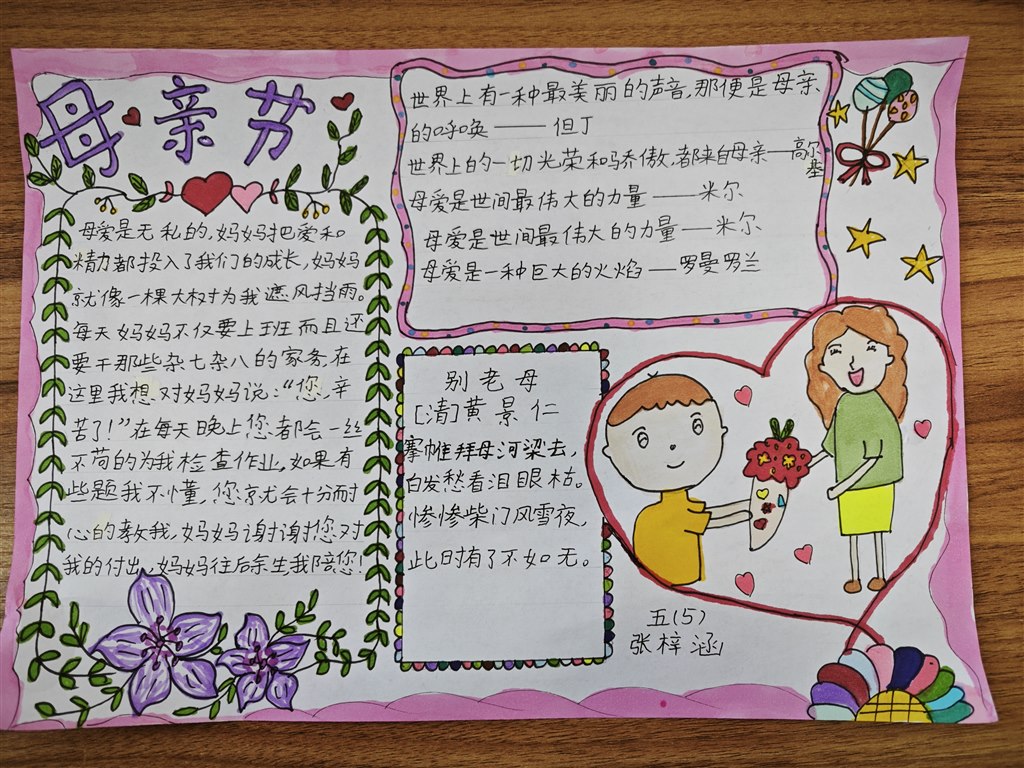 母亲节
母爱是无私的,妈妈把爱和
精力都投入了我们的成长,妈妈
就像一棵大树为我遮风挡雨。
每天妈妈不仅要上班而且还
要干那些杂七杂八的家务,在
这里我想对妈妈说:“您,辛
苦了!”在每天晚上您都会一丝
不苟的为我检查作业,如果有
些题我不懂,您就会十分耐
心的教我,妈妈谢谢您对
我的付出,妈妈往后余生,我陪您!
世界上有一种最美丽的声音,那便是母亲
的呼唤——但丁
世界上的一切光荣和骄傲,都来自母亲—高尔
基
母爱是世间最伟大的力量——米尔
母爱是世间最伟大的力量——米尔
母爱是一种巨大的火焰—罗曼罗兰
别老母
[清]黄景仁
搴帷拜母河梁去,
白发愁看泪眼枯。
惨惨柴门风雪夜,
此时有了不如无。
五(5)
张梓涵